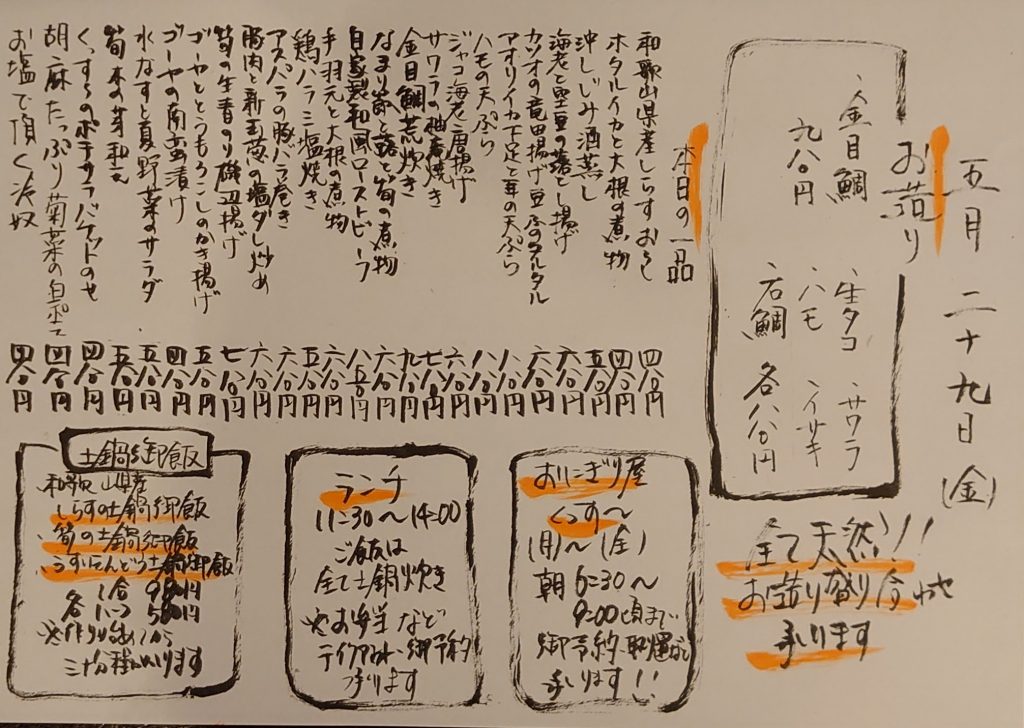 五月二十九日(金)
お造り
金目鯛
九八〇円
生タコ サワラ
ハモ イサキ
石鯛 各八八〇円
全て天然!!
お造り盛り合わせ
承ります
本日の一品
和歌山県産しらすおろし 四八〇円
ホタルイカと大根の煮物 四八〇円
沖しじみ酒蒸し 五八〇円
海老と空豆の落とし揚げ 六八〇円
カツオの竜田揚げ 豆ふのタルタル 六八〇円
アオリイカ下足と茸の天ぷら 八八〇円
ハモの天ぷら 八八〇円
ジャコ海老唐揚げ 六八〇円
サワラの柚庵焼き 七八〇円
金目鯛荒炊き 九八〇円
なまり節と蕗と筍の煮物 六八〇円
自家製和風ローストビーフ 八五〇円
手羽元と大根の煮物 六八〇円
鶏ハラミ塩焼き 五八〇円
アスパラの豚バラ巻き 六八〇円
豚肉と新玉葱の塩ダレ炒め 六八〇円
筍の生青のり磯辺揚げ 七八〇円
ゴーヤととうもろこしのかき揚げ 五八〇円
ゴーヤの南蛮漬け 四八〇円
水なすと夏野菜のサラダ 五八〇円
筍木の芽和え 五八〇円
くっすらのポテサラバケットのせ 四八〇円
胡麻たっぷり菊菜の白和え 四八〇円
お塩で頂く冷奴 四八〇円
おにぎり屋
くっす〜
(月)〜(金)
朝6:30〜
9:00頃まで
御予約・取置など
承ります!!
ランチ
11:30〜14:00
ご飯は
全て土鍋炊き
※お弁当など
テイクアウト・御予約
承ります
土鍋御飯
和歌山県産
しらすの土鍋御飯
筍の土鍋御飯
うすいえんどう土鍋御飯
1合 980円
各
※作り出してから
三十分程かかります